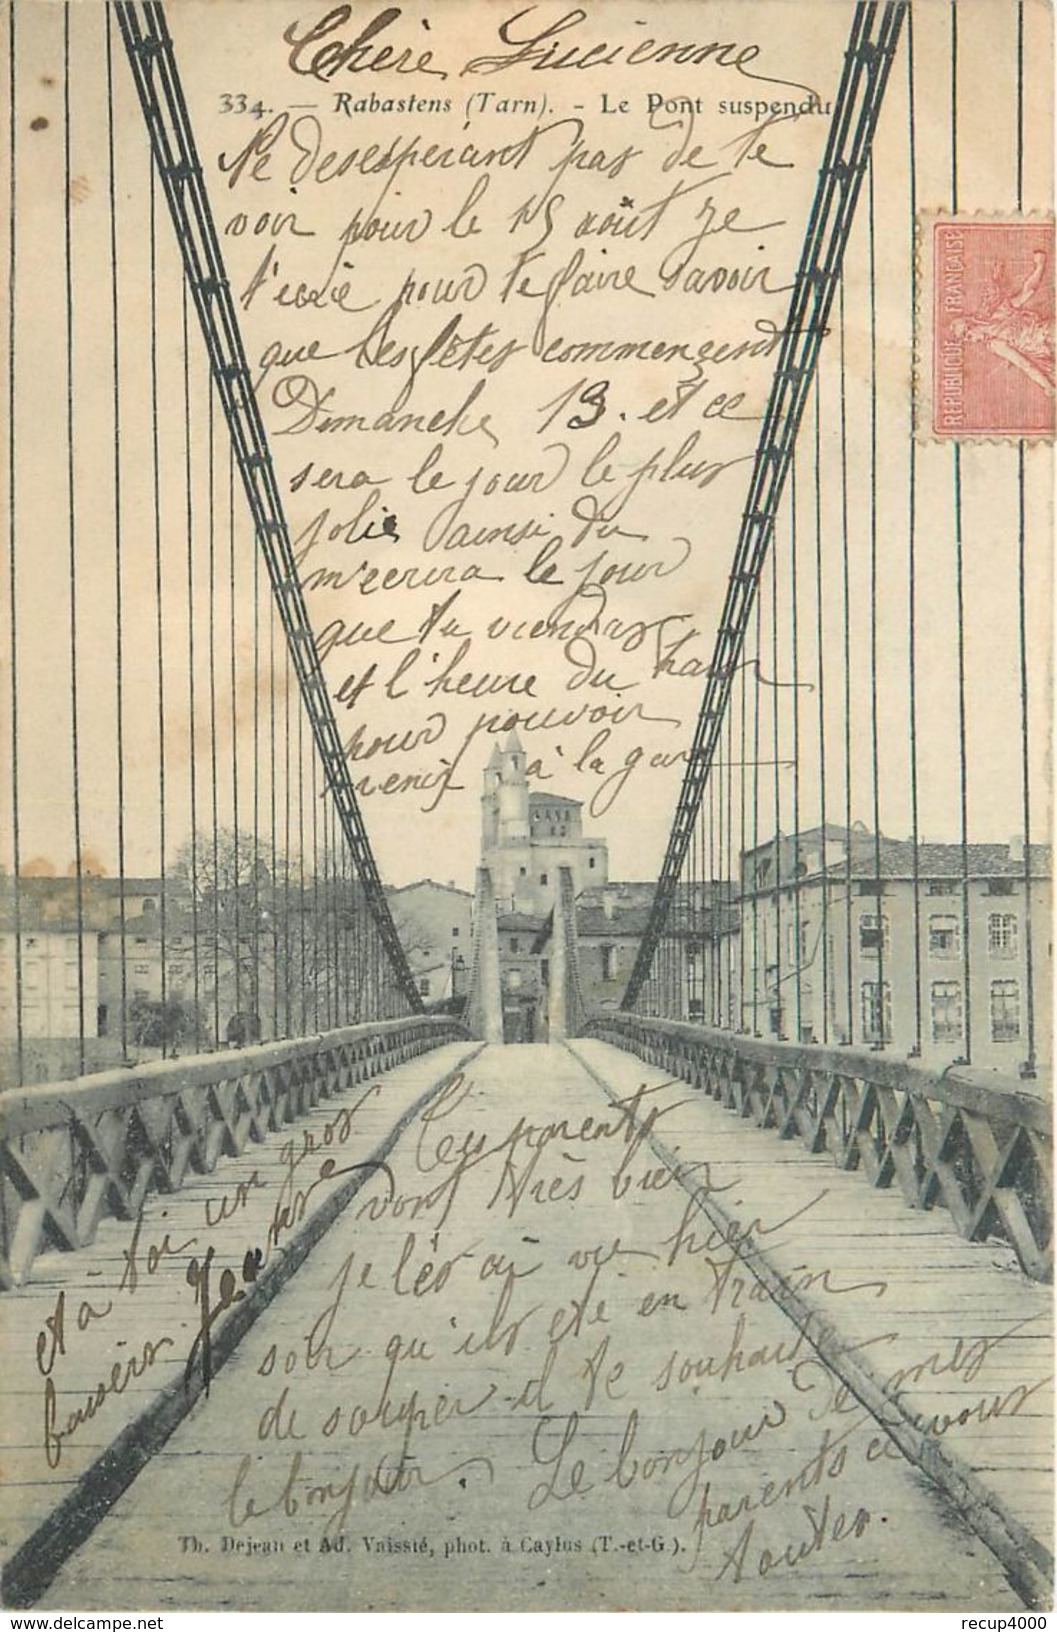 Chère Lucienne
334. — Rabastens (Tarn). - Le Pont suspendu
Ne desesperant pas de te
voir pour le 15 août Je
t'ecrie pour te faire savoir
que les fêtes commencent
Dimanche 13. et ce
sera le jour le plus
jolie ainsi du
m'ecrira le jour
que tu viendras
et l'heure du train
pour pouvoir
venir à la gare
REPUBLIQUE FRANÇAISE
Tes parents
vont très bien
je les ai vu hier
soir qu'ils eté en train
de souper il te souhaite
le bonjour. Le bonjour de mes
parents a vous
toutes.
et à toi un gros
baisers. Jeanne
Th. Dejean et Ad. Vaissié, phot. à Caylus (T.-et-G.).
recup4000